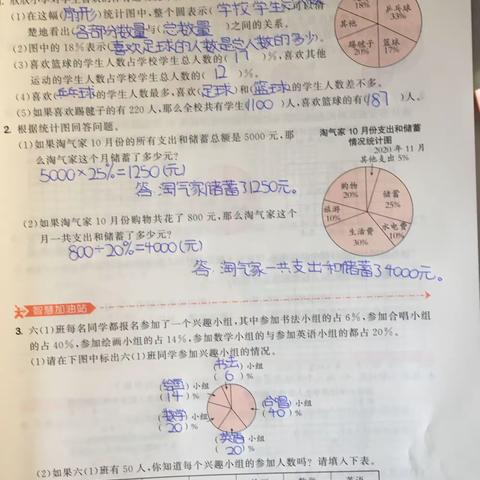 (1)在这幅(扇形)统计图中,整个圆表示(学校学生
楚地看出(各部分数量与(总数量)之间的关系。
(2)图中的18%表示(喜欢足球的人数是总人数的多少)。
(3)喜欢篮球的学生人数占学校学生总人数的( 17 )%,喜欢其他
运动的学生人数占学校学生总人数的( 12 )%。
(4)喜欢(乒乓球的学生人数最多,喜欢(足球)和(篮球的学生人数差不多。
(5)如果喜欢踢毽子的有220人,那么全校共有学生(1100)人,喜欢篮球的有(187)人。
18%
乒乓球
33%
其他
踢毽子
20%
篮球
17%
2. 根据统计图回答问题。
(1)如果淘气家10月份的所有支出和储蓄总额是5000元,那
么淘气家这个月储蓄了多少元?
5000×25%=1250(元)
答:淘气家储蓄了1250元。
(2)如果淘气家10月份购物共花了800元,那么淘气家这个
月一共支出和储蓄了多少元?
800÷20%=4000(元)
答:淘气家一共支出和储蓄了4000元。
淘气家10月份支出和储蓄
情况统计图
2020年11月
其他支出5%
购物
20%
储蓄
25%
旅游
10%
水电费
10%
生活费
30%
智慧加油站
3. 六(1)班每名同学都报名参加了一个兴趣小组,其中参加书法小组的占6%,参加合唱小组
的占40%,参加绘画小组的占14%,参加数学小组的与参加英语小组的都占20%。
(1)请在下图中标出六(1)班同学参加兴趣小组的情况。
(书法)小组
( 6 )%
(绘画)小组
( 14 )%
(合唱)小组
( 40 )%
(数学)小组
( 20 )%
(英语)小组
( 20 )%
(2)如果六(1)班有50人,你知道每个兴趣小组的参加人数吗?请填入下表。